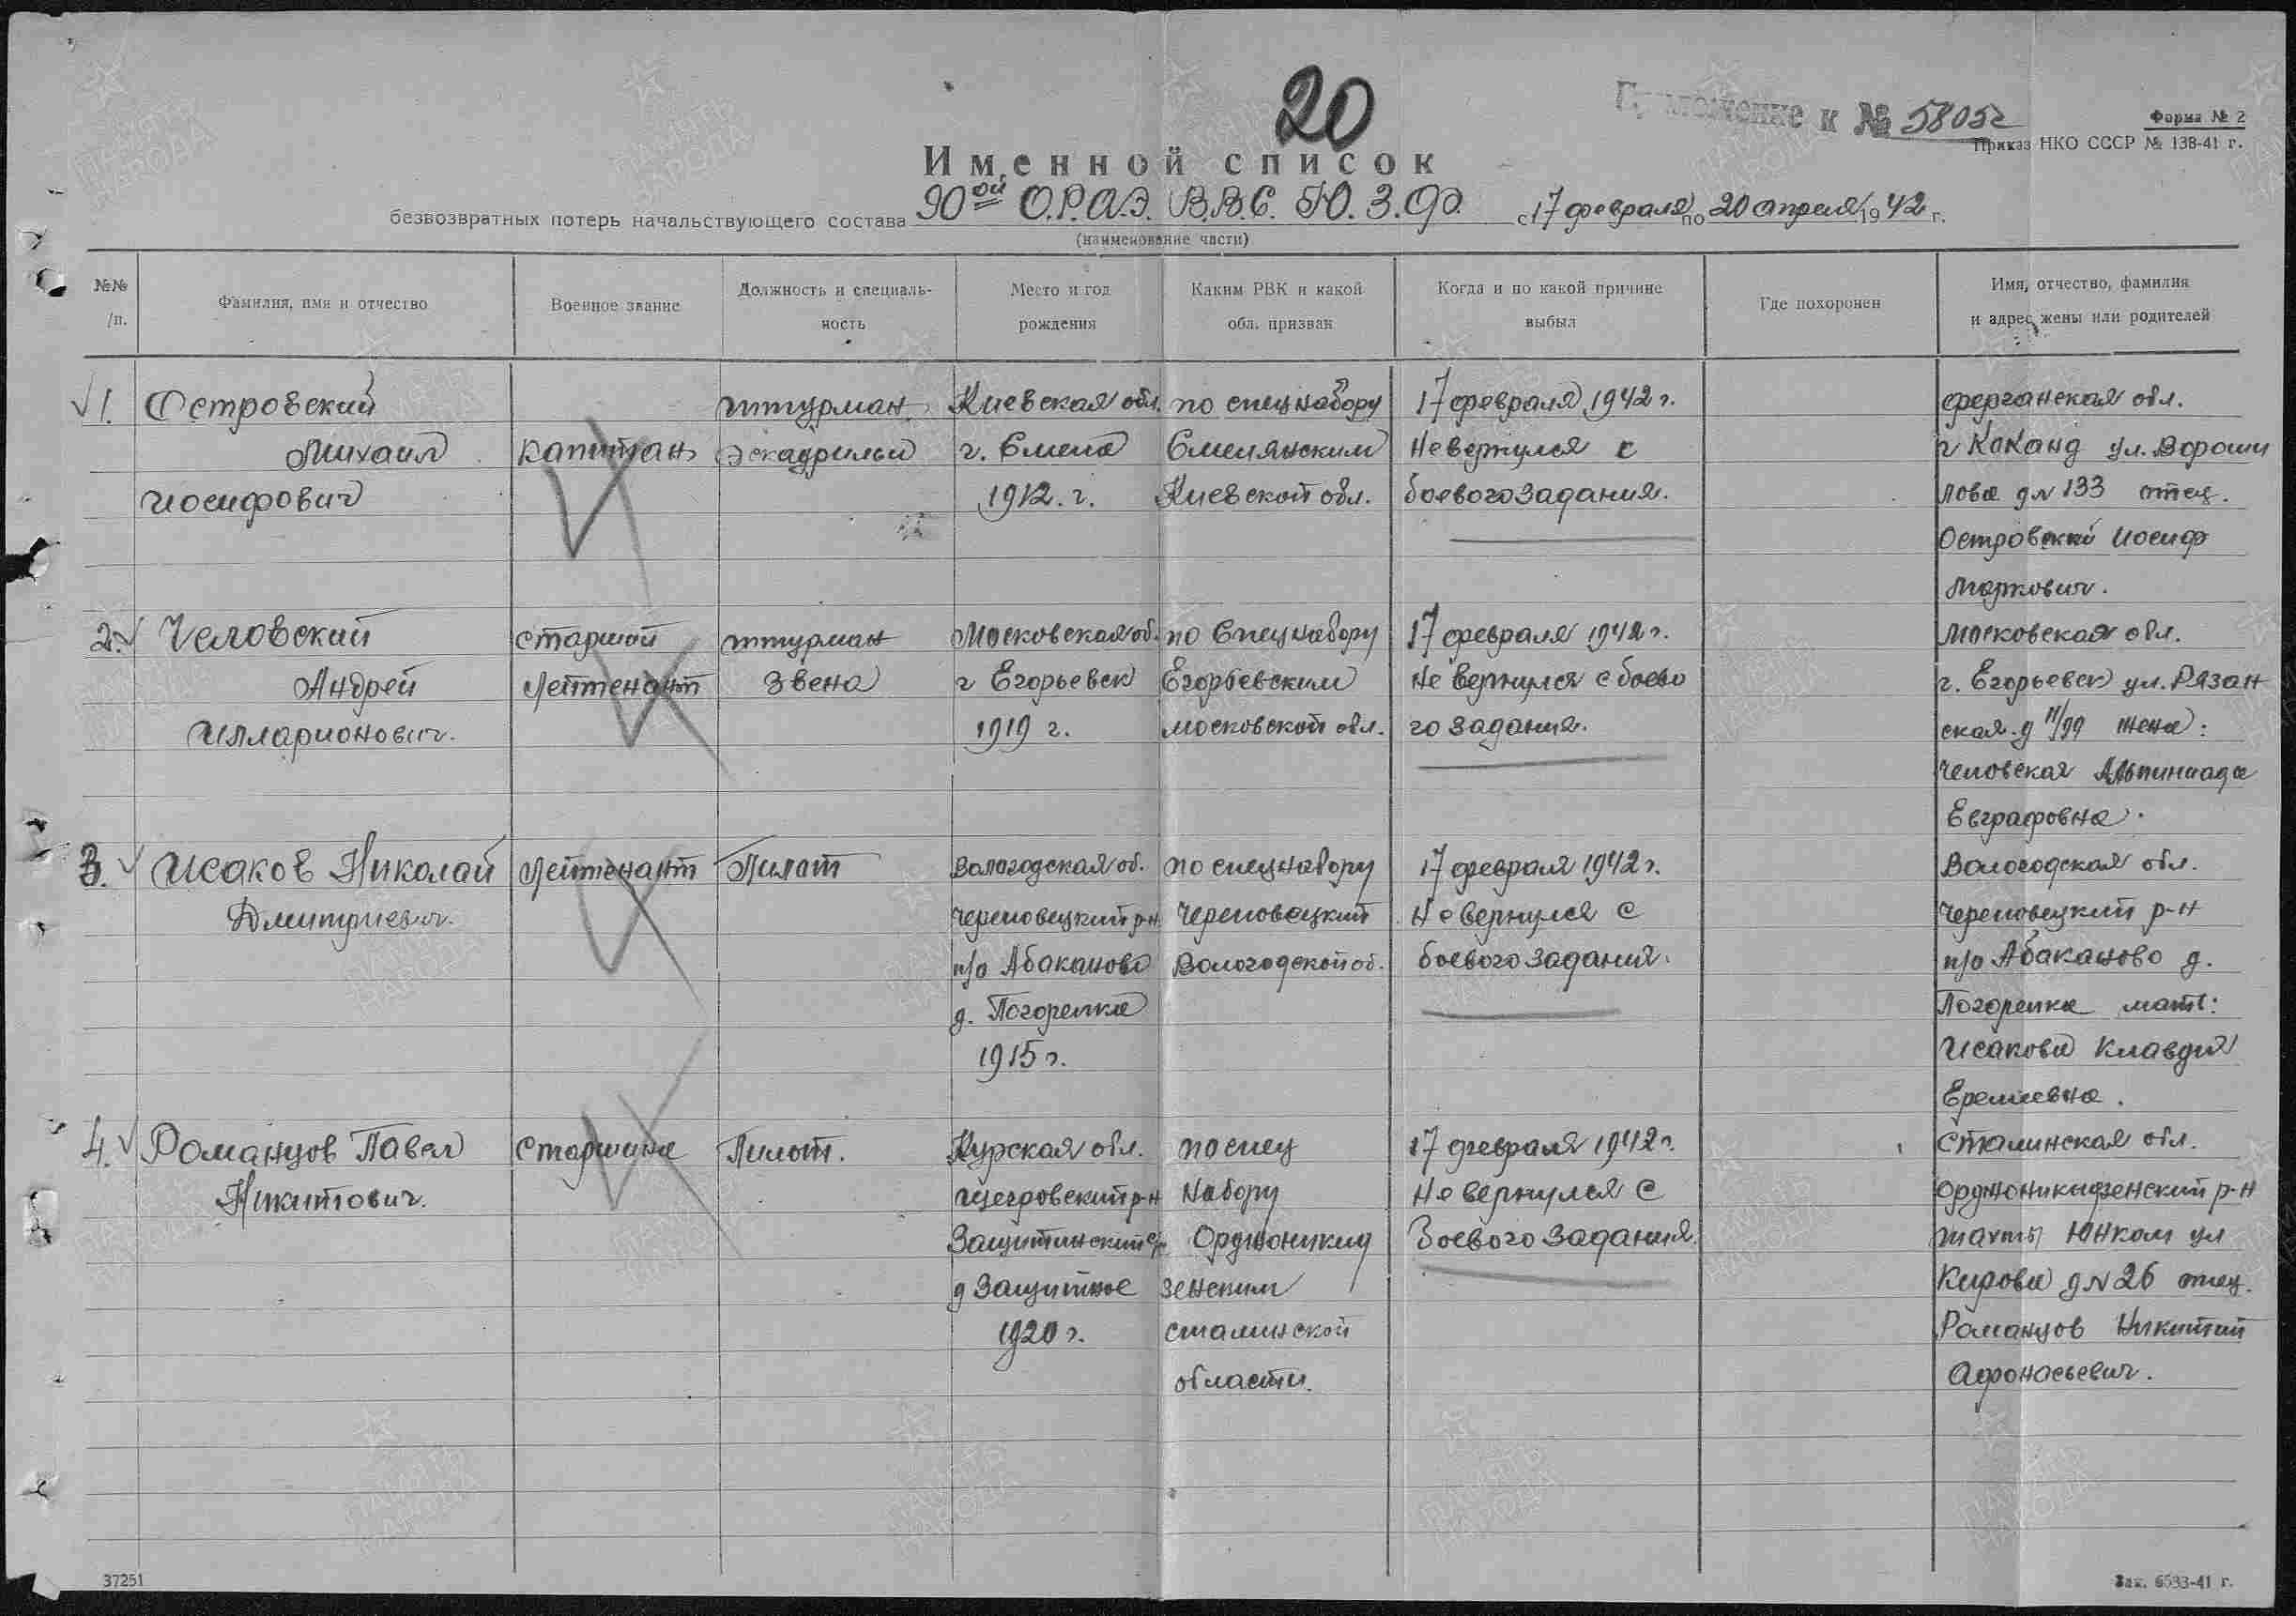 20
Приложение к № 58052
Форма № 2
Приказ НКО СССР № 138-41 г.
Именной список
безвозвратных потерь начальствующего состава 90ой О.Р.А.Э. В.В.С. Ю.З.Ф. с 17 февраля по 20 апреля 1942 г.
(наименование части)
№№ /п.
Фамилия, имя и отчество
Военное звание
Должность и специаль-
ность
Место и год
рождения
Каким РВК и какой
обл. призван
Когда и по какой причине
выбыл
Где похоронен
Имя, отчество, фамилия
и адрес жены или родителей
1. Островский штурман Киевская обл. по спецнабору 17 февраля 1942 г. Ферганская обл.
Михаил капитан эскадрильи г. Смела Смелянским Не вернулся с г Каканд ул. Вороши
Иосифович 1912. г. Киевской обл. боевого задания. лова д№ 133 отец.
Островский Иосиф
Маркович.
2. Человский старший штурман Московская об. по Спецнабору 17 февраля 1942 г. Московская обл.
Андрей Лейтенант звена г Егорьевск Егорьевским Не вернулся с боево г. Егорьевск ул. Рязан
Илларионович. 1919 г. Московской обл. го задания. ская. д 11/99 жена:
Человская
Евграфовна.
3. Исаков Николай Лейтенант Пилот Вологодская об. по спецнабору 17 февраля 1942 г. Вологодская обл.
Дмитриевич. Череповецкий р-н Череповецкий Не вернулся с Череповецкий р-н
п/о Абаканово Вологодской об. боевого задания. п/о Абаканово д.
д. Погорелка Погорелка мать:
1915 г. Исакова Клавдия
Еремеевна.
4. Романцов Павел Старшина Пилот. Курская обл. по спец 17 февраля 1942 г. Сталинская обл.
Никитович. Щегровский р-н Набору Не вернулся с Орджоникидзенский р-н
Защитинский с/с Орджоникид Боевого задания. шахты Юнком ул
д Защитное зенским Кирова д№ 26 отец.
1920 г. Сталинской Романцов Никитий
области. Афонасьевич.
37251
Зак. 6533-41 г.
ПАМЯТЬ
НАРОДА